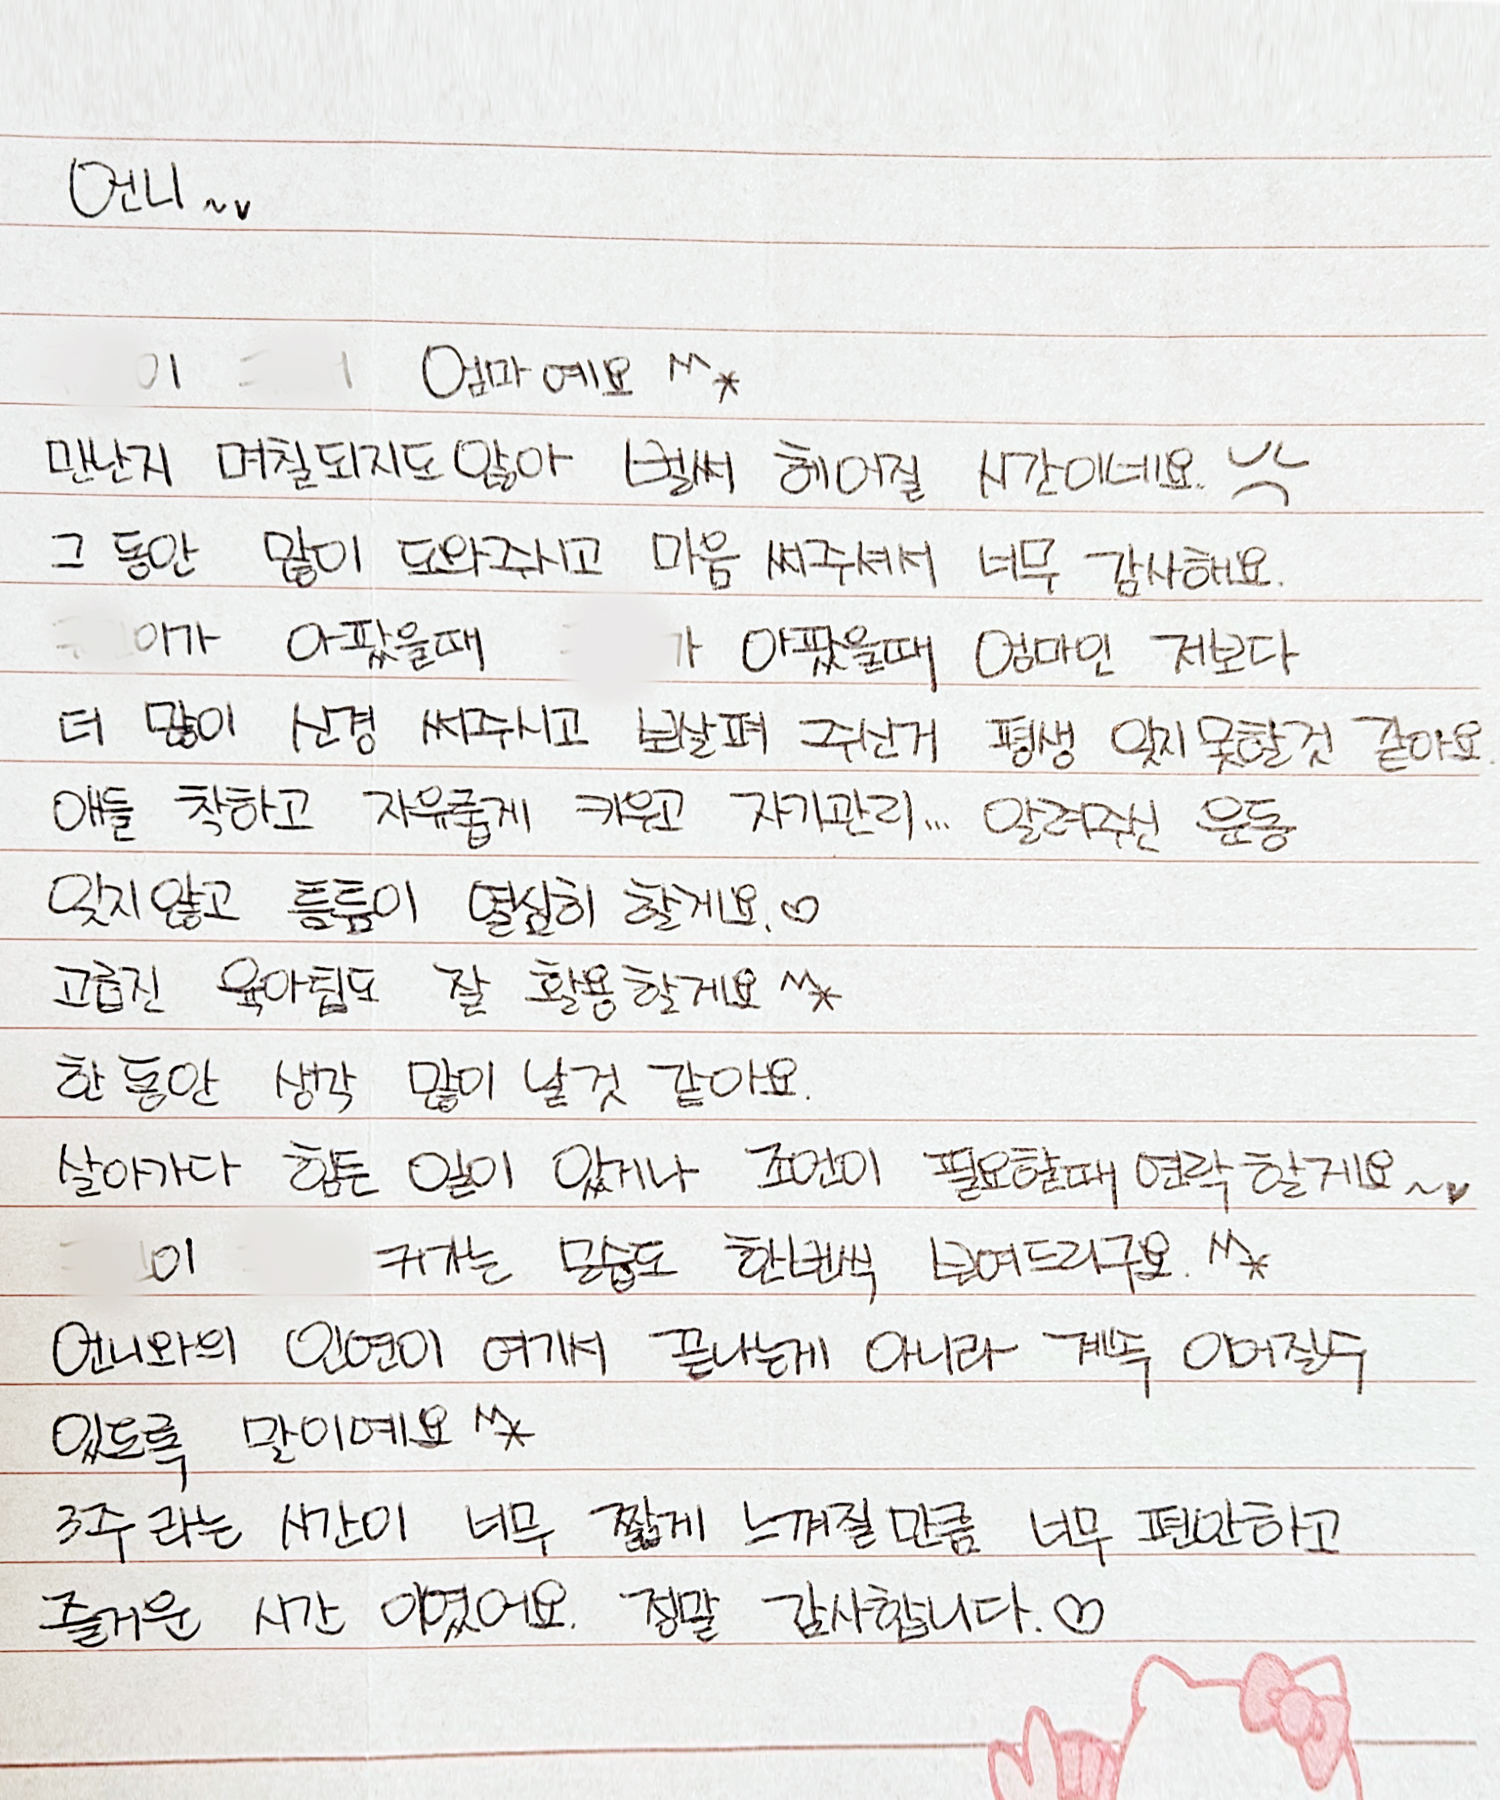 언니~♥
이 엄마예요 ^^*
만난지 며칠되지도 않아 벌써 헤어질 시간이네요.
그 동안 많이 도와주시고 마음 써주셔서 너무 감사해요.
아가 아팠을때 가 아팠을때 엄마인 저보다
더 많이 신경 써주시고 보살펴 주신거 평생 잊지못할것 같아요.
애들 착하고 자유롭게 키우고 자기관리... 알려주신 운동
잊지않고 틈틈이 열심히 할게요.♡
고급진 육아팁도 잘 활용할게요^^*
한동안 생각 많이 날것 같아요.
살아가다 힘든 일이 있거나 조언이 필요할때 연락할게요~♥
이 커가는 모습도 한번씩 보여드리구요.^^*
언니와의 인연이 여기서 끝나는게 아니라 계속 이어질수
있도록 말이예요^^*
3주라는 시간이 너무 짧게 느껴질만큼 너무 편안하고
즐거운 시간 이였어요. 정말 감사합니다.♡